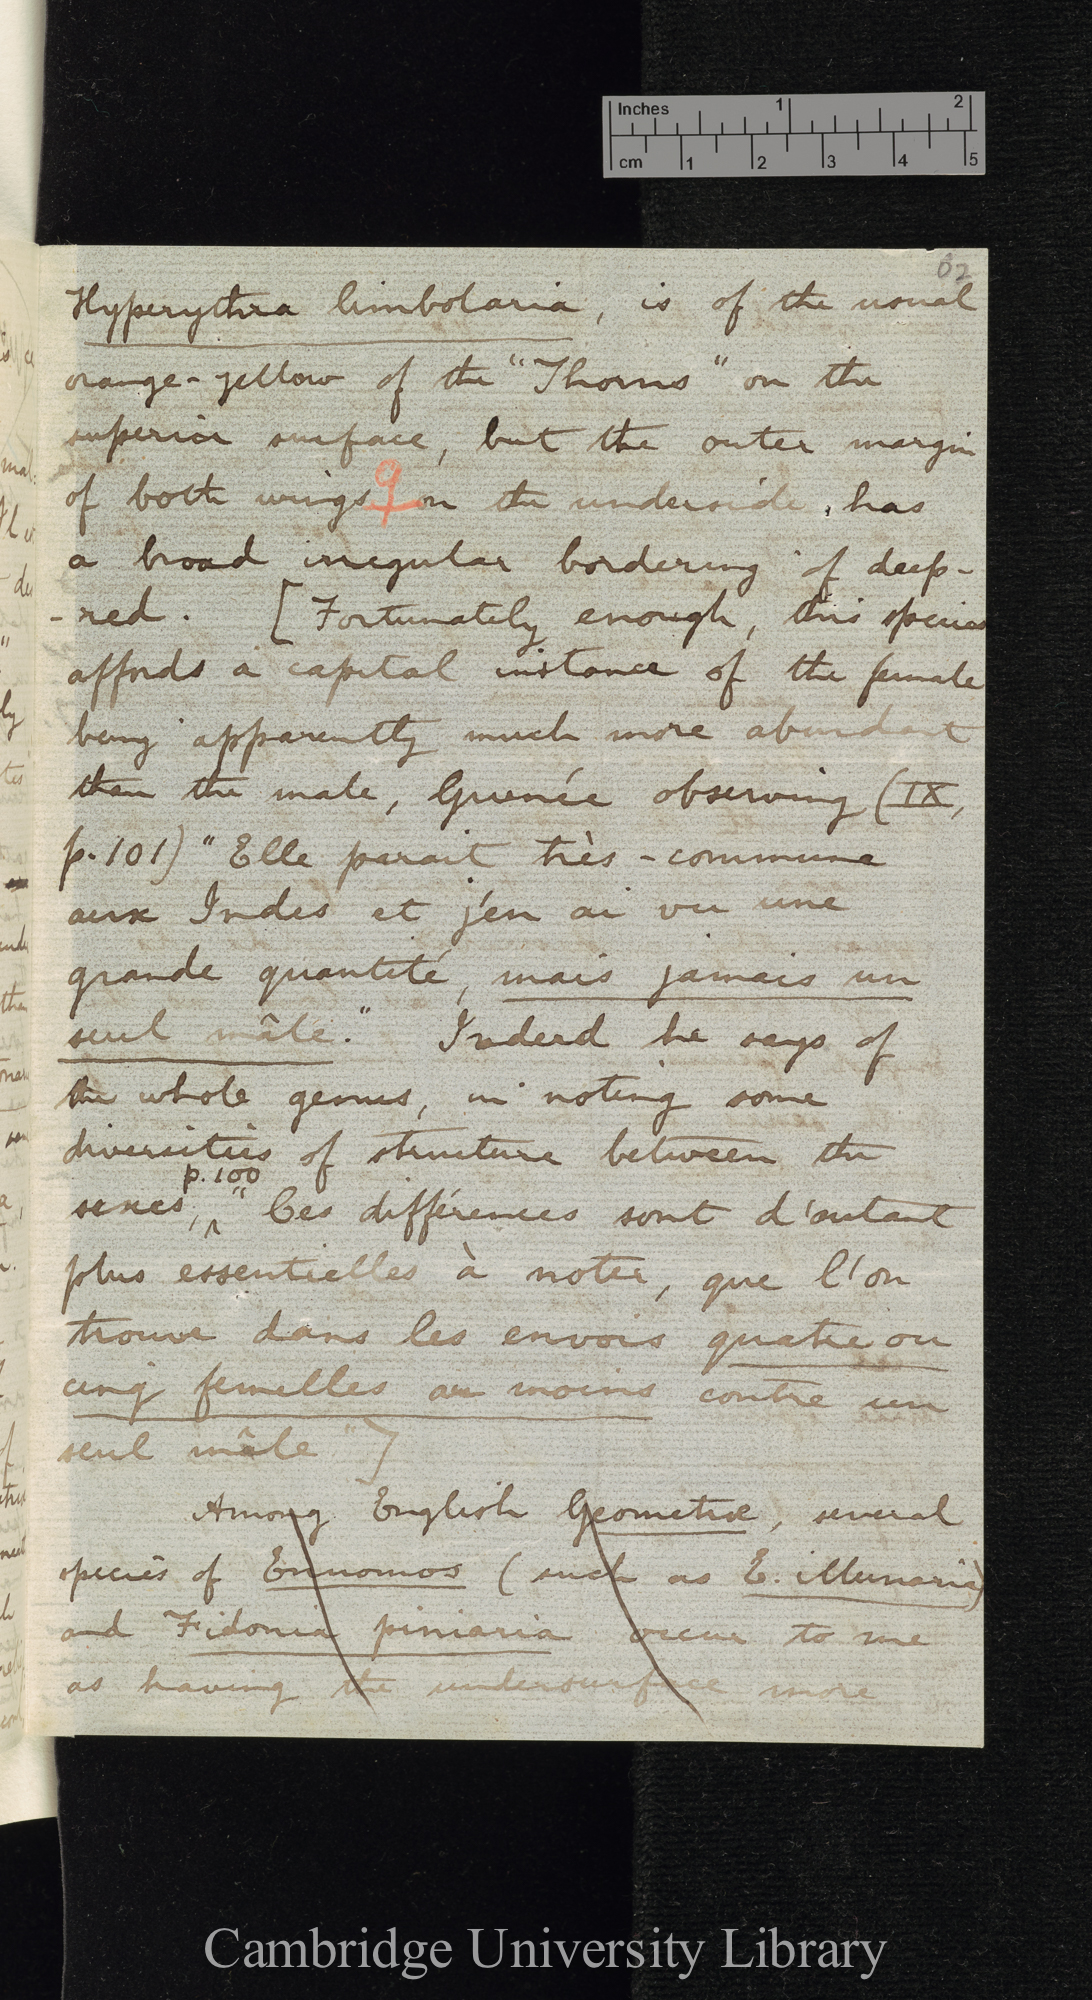 Inches 1 2
cm 1 2 3 4 5
Hyperythra limbolaria, is of the usual
orange-yellow of the "Thorns" on the
superior surface, but the outer margin
of both wings ♀ on the underside, has
a broad irregular bordering of deep-
-red. [Fortunately enough, this species
affords a capital instance of the female
being apparently much more abundant
than the male, Guenée observing (IX,
p.101) "Elle parait très-commune
aux Indes et j'en ai vu une
grande quantité, mais jamais un
seul mâle." Indeed he says of
the whole genus, in noting some
diversities of structure between the
p.100
sexes, "Ces différences sont d'autant
plus essentielles à noter, que l'on
trouve dans les envois quatre ou
cinq femelles au moins contre un
seul mâle"]
Among English Geometræ, several
species of Ennomos (such as E. illunaria)
and Fidonia piniaria occur to me
as having the undersurface more
Cambridge University Library